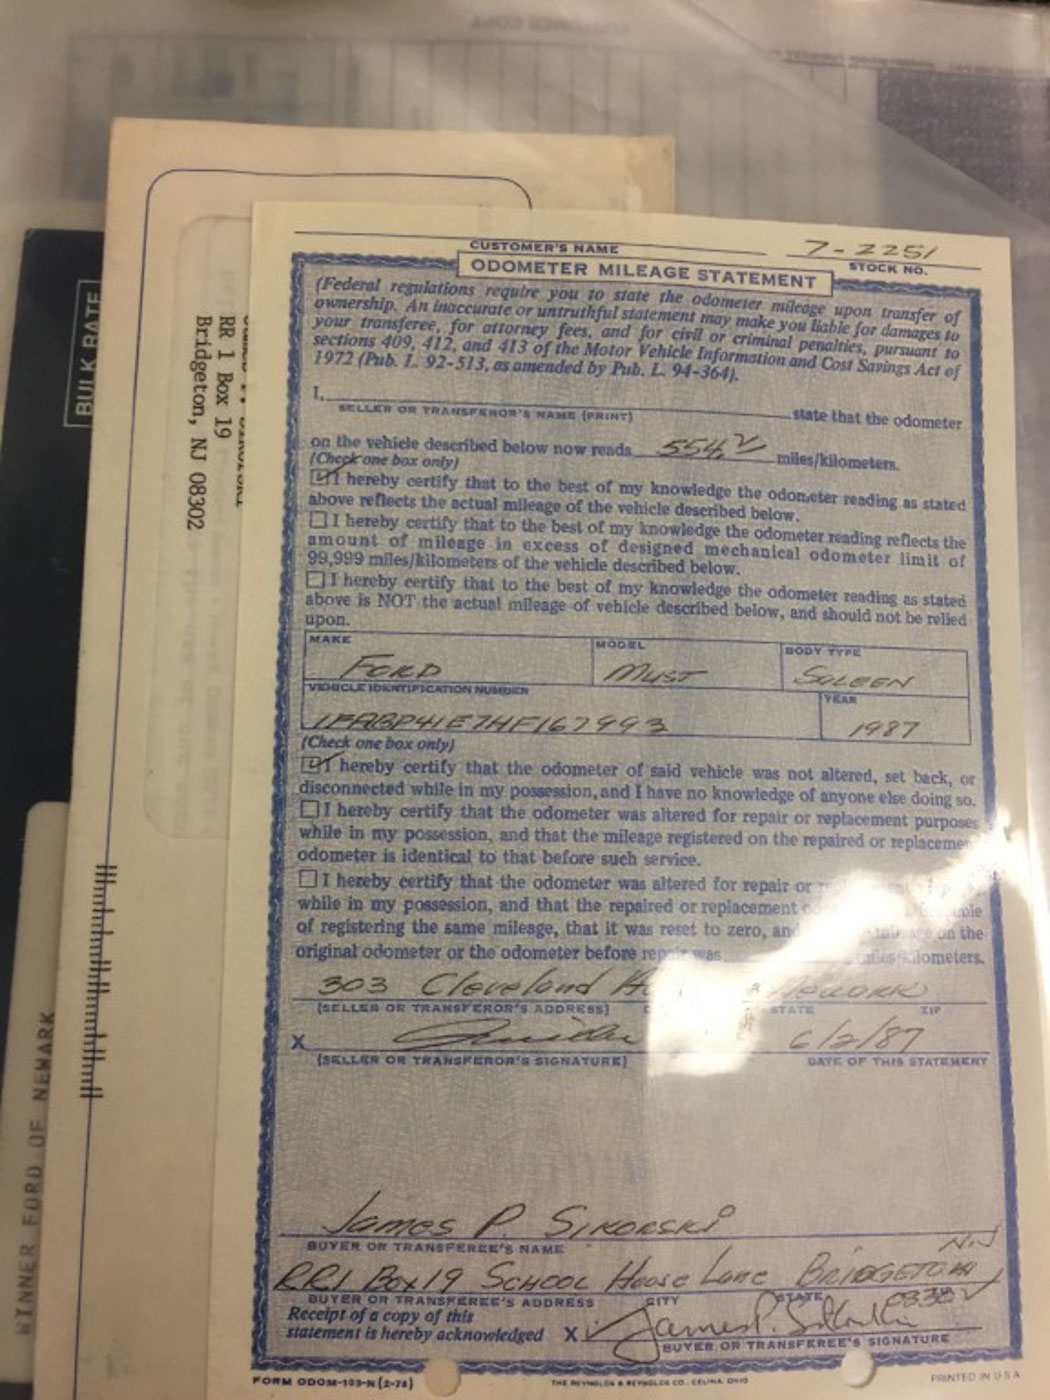 BULK RATE
RR 1 Box 19
Bridgeton, NJ 08302
WINNER FORD OF NEWARK
7-2251
CUSTOMER'S NAME
STOCK NO.
ODOMETER MILEAGE STATEMENT
(Federal regulations require you to state the odometer mileage upon transfer of
ownership. An inaccurate or untruthful statement may make you liable for damages to
your transferee, for attorney fees, and for civil or criminal penalties, pursuant to
sections 409, 412, and 413 of the Motor Vehicle Information and Cost Savings Act of
1972 (Pub. L. 92-513, as amended by Pub. L. 94-364).
I, state that the odometer
SELLER OR TRANSFEROR'S NAME (PRINT)
on the vehicle described below now reads miles/kilometers.
(Check one box only)
I hereby certify that to the best of my knowledge the odometer reading as stated
above reflects the actual mileage of the vehicle described below.
I hereby certify that to the best of my knowledge the odometer reading reflects the
amount of mileage in excess of designed mechanical odometer limit of
99,999 miles/kilometers of the vehicle described below.
I hereby certify that to the best of my knowledge the odometer reading as stated
above is NOT the actual mileage of vehicle described below, and should not be relied
upon.
MAKE MODEL BODY TYPE
FORD MUST SALEEN
VEHICLE IDENTIFICATION NUMBER YEAR
1FABP41E7HF167993 1987
(Check one box only)
I hereby certify that the odometer of said vehicle was not altered, set back, or
disconnected while in my possession, and I have no knowledge of anyone else doing so.
I hereby certify that the odometer was altered for repair or replacement purposes
while in my possession, and that the mileage registered on the repaired or replacemen
odometer is identical to that before such service.
I hereby certify that the odometer was altered for repair or
while in my possession, and that the repaired or replacement
of registering the same mileage, that it was reset to zero, and on the
original odometer or the odometer before repair was miles/kilometers.
303 Cleveland Newark
(SELLER OR TRANSFEROR'S ADDRESS) STATE ZIP
X 6/2/87
(SELLER OR TRANSFEROR'S SIGNATURE) DATE OF THIS STATEMENT
James P. Sikorski
BUYER OR TRANSFEREE'S NAME
RR1 Box 19 School House Lane Bridgeton
BUYER OR TRANSFEREE'S ADDRESS CITY STATE
Receipt of a copy of this
statement is hereby acknowledged X James P. Sikorski
BUYER OR TRANSFEREE'S SIGNATURE
FORM ODOM-103-N (2-78) THE REYNOLDS & REYNOLDS CO., CELINA, OHIO PRINTED IN U S A